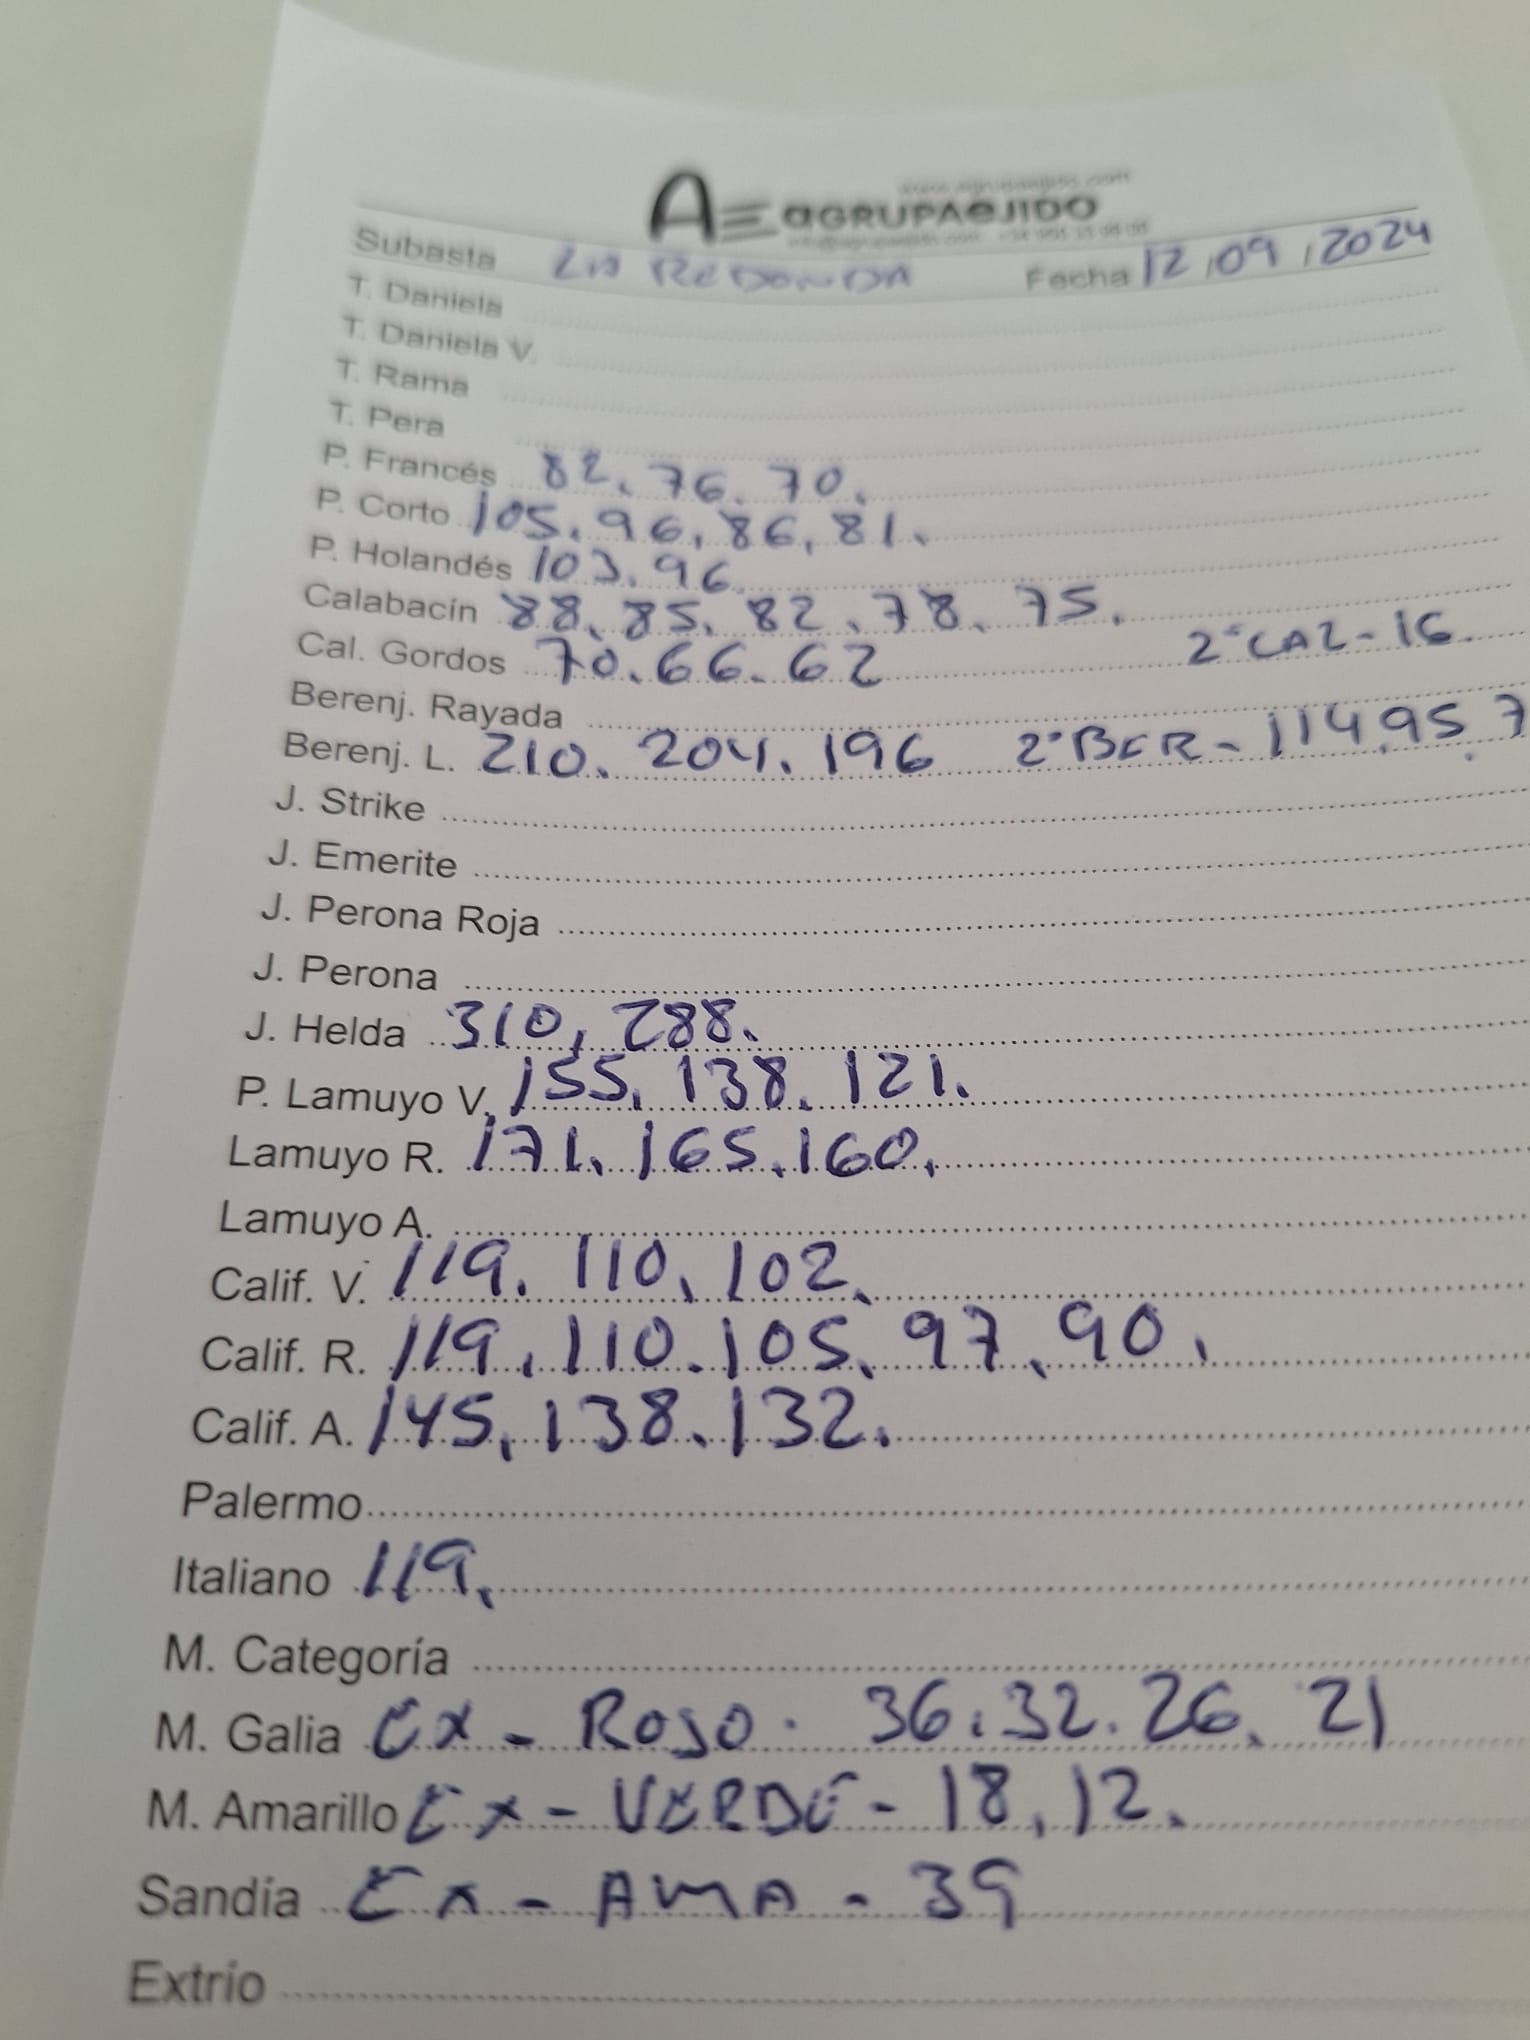 AE aGRUPAeJIDO
Subasta LA REDONDA Fecha 12/09/2024
T. Daniela
T. Daniela V.
T. Rama
T. Pera
P. Francés 82. 76. 70.
P. Corto 105. 96. 86. 81.
P. Holandés 103. 96.
Calabacín 88. 85. 82. 78. 75.
Cal. Gordos 70. 66. 62 2ª CAL - 16.
Berenj. Rayada
Berenj. L. 210. 204. 196 2ª BER - 114. 95. 7
J. Strike
J. Emerite
J. Perona Roja
J. Perona
J. Helda 310, 288.
P. Lamuyo V. 155. 138. 121.
Lamuyo R. 171. 165. 160.
Lamuyo A.
Calif. V. 119. 110. 102.
Calif. R. 119. 110. 105. 97. 90.
Calif. A. 145. 138. 132.
Palermo
Italiano 119.
M. Categoría
M. Galia EX - ROJO. 36. 32. 26. 21
M. Amarillo EX - VERDE - 18. 12.
Sandía EX - AMA - 39
Extrío